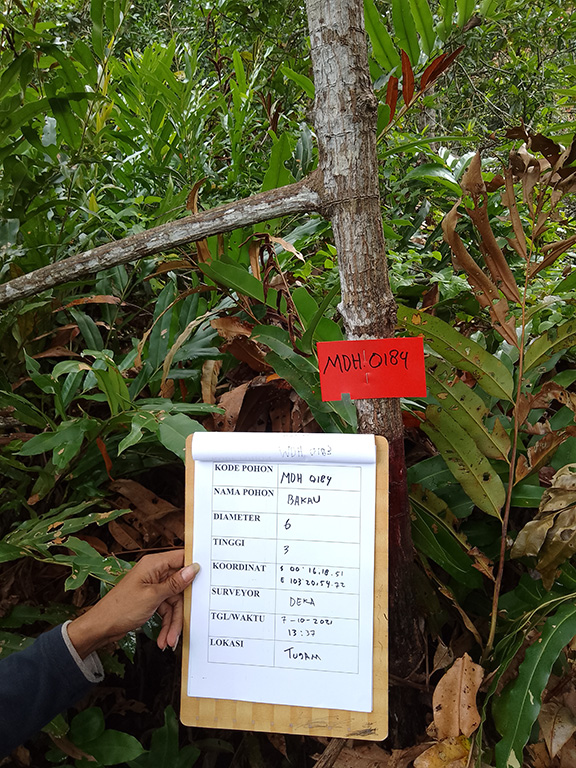 MDH 0184
WDH 0183
KODE POHON MDH 0184
NAMA POHON BAKAU
DIAMETER 6
TINGGI 3
KOORDINAT S 00°16.18.51
E 103°20.54.72
SURVEYOR DEKA
TGL/WAKTU 7-10-2021
13:37
LOKASI TUGAM